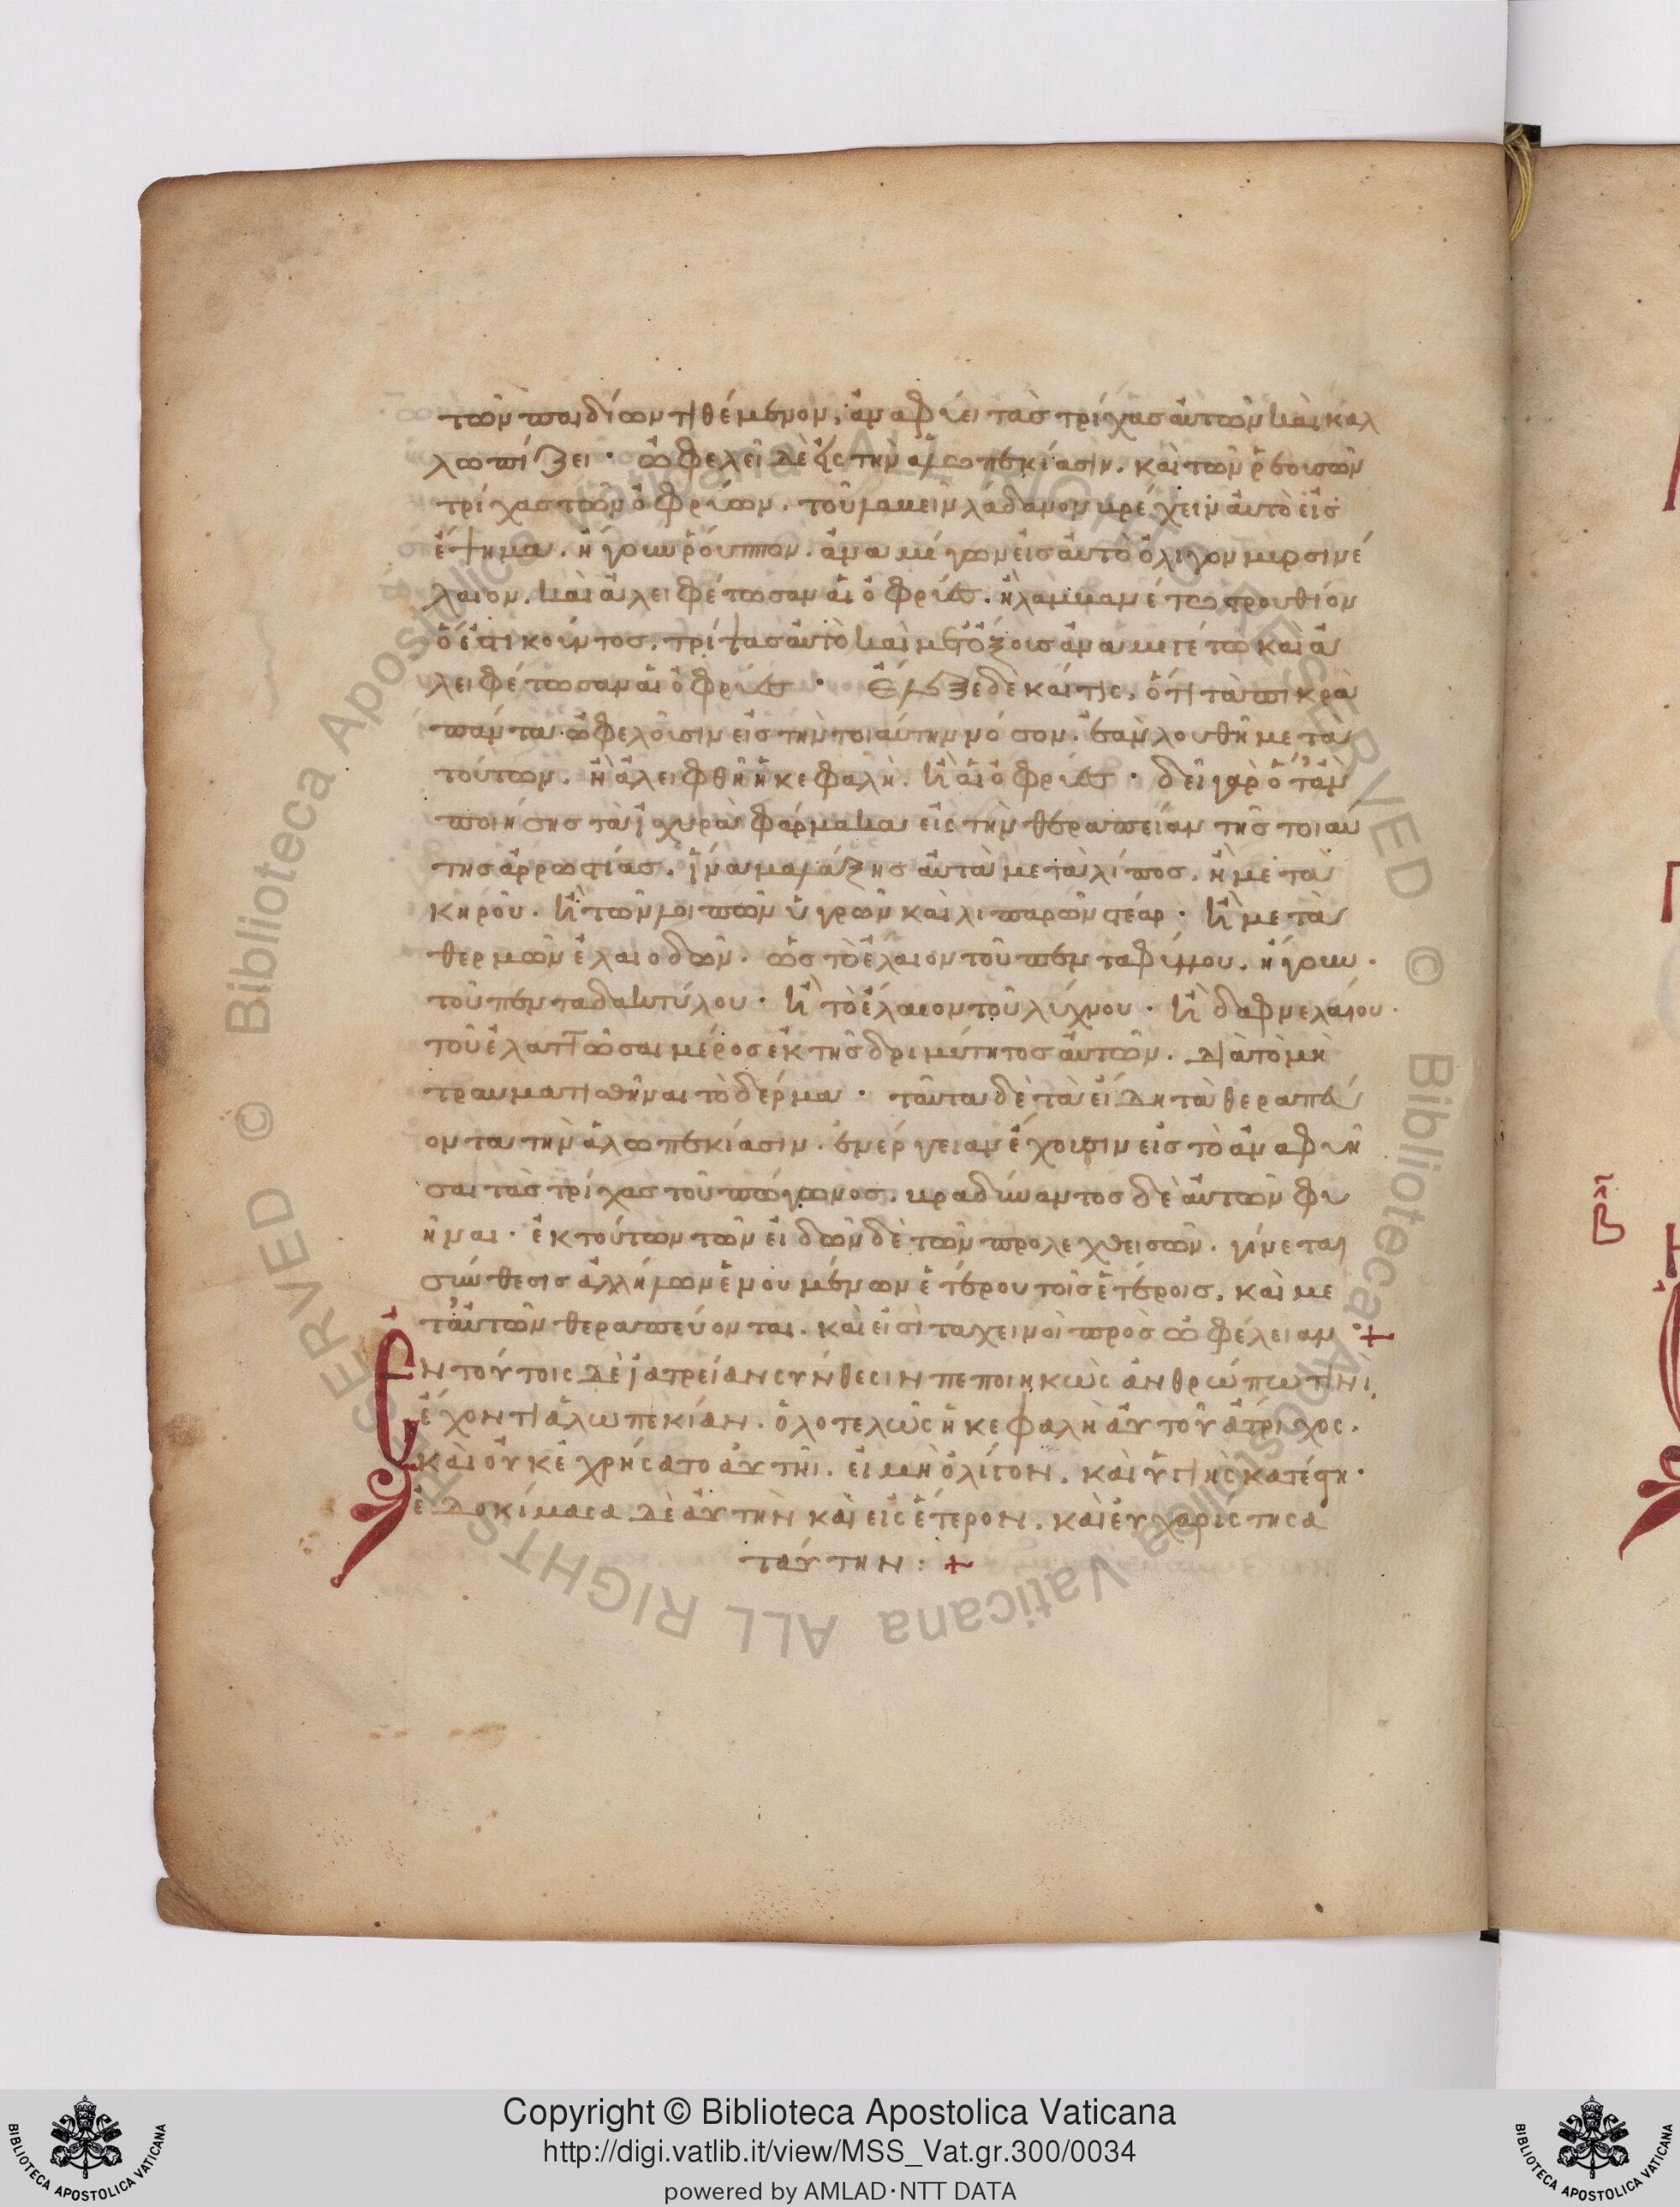 τῶν παιδίων τιθέμενον, ἀναφύει τὰς τρίχας αὐτῶν καὶ καλ
λωπίζει · ὠφελεῖ δὲ εἰς τὴν ἀλωπεκίασιν. καὶ τῶν ῥεουσῶν
τρίχας τῶν ὀφρύων. τοῦ λαβεῖν λάδανον βρέχειν αὐτὸ εἰς
ἕψημα. ἤγουν ῥόϊπον. ἀναμίγων εἰς αὐτὸ ὀλίγον μυρσινέ
λαιον. καὶ ἀλειφέτωσαν αἱ ὀφρύες. ἢ λαμβανέτω στρουθίον
ὅ ἐστι κούντος. τρίψας αὐτὸ καὶ μετ ὄξους ἀναμιγέτω καὶ ἀ
λειφέτωσαν αἱ ὀφρύες ·
πάντα ὠφελοῦσιν εἰς τὴν τοιαύτην νόσον. ἐὰν λουθῆ μετα
τούτων. ἢ ἀλειφθῆ ἡ κεφαλὴ. ἢ αἱ ὀφρύες · δεῖ γὰρ ὅταν
ποιήσης τὰ ἰσχυρὰ φάρμακα εἰς τὴν θεραπείαν τῆς τοιαύ
της ἀρρωστίας. ἵνα μαλάξης αὐτὰ μετὰ λίπος. ἢ μετὰ
κηροῦ. ἢ τῶν λοιπῶν ὑγρῶν καὶ λιπαρῶν στέαρ · ἢ μετὰ
θερμῶν ἐλαιοδῶν. ὡς τὸ ἔλαιον τοῦ πενταφύλλου. ἤγουν ·
τοῦ πενταδακτύλου · ἢ τὸ ἔλαιον τοῦ λύχνου · ἢ δαφνελαίου ·
τοῦ ἐλαττῶσαι μέρος ἐκ τῆς δριμύτητος αὐτῶν. διὰ τὸ μὴ
τραυματισθῆναι τὸ δέρμα · ταῦτα δὲ τὰ εἴδη τὰ θεραπεύ
οντα τὴν ἀλωπεκίασιν. ἐνέργειαν ἔχουσιν εἰς τὸ ἀναφυῆ
σαι τὰς τρίχας τοῦ πώγωνος. βραδύναντος δὲ αὐτῶν φυ
ῆναι · ἐκ τούτων τῶν εἰδῶν δὲ τῶν προλεχθεισῶν. γίνεται
σύνθεσις ἀλλήλων ἑνουμένων ἑτέρου τοῖς ἑτέροις. καὶ με
τ᾽αὐτῶν θεραπεύονται. καὶ εἰσὶ ταχεινοὶ πρὸς ὠφέλειαν +
Ἐν τούτοις δὲ ἰατρείαν σύνθεσιν πεποιηκὼς ἀνθρώπω τινὶ,
ἔχοντι ἀλωπεκίαν. ὁλοτελῶς ἡ κεφαλὴ αὐτοῦ ἄτριχος.
καὶ οὐκ ἐχρήσατο αὐτῆι. εἰ μὴ ὀλίγον. καὶ ὑγιὴς κατέστη ·
ἐδοκίμασα δὲ αὐτὴν καὶ εἰς ἕτερον. καὶ εὐχαρίστησα
ταύτην : +
βλ
Copyright © Biblioteca Apostolica Vaticana
http://digi.vatlib.it/view/MSS_Vat.gr.300/0034
powered by AMLAD·NTT DATA
BIBLIOTECA APOSTOLICA VATICANA
BIBLIOTECA APOSTOLICA VATICANA
© Biblioteca Apostolica Vaticana ALL RIGHTS RESERVED © Biblioteca Apostolica Vaticana ALL RIGHTS RESERVED